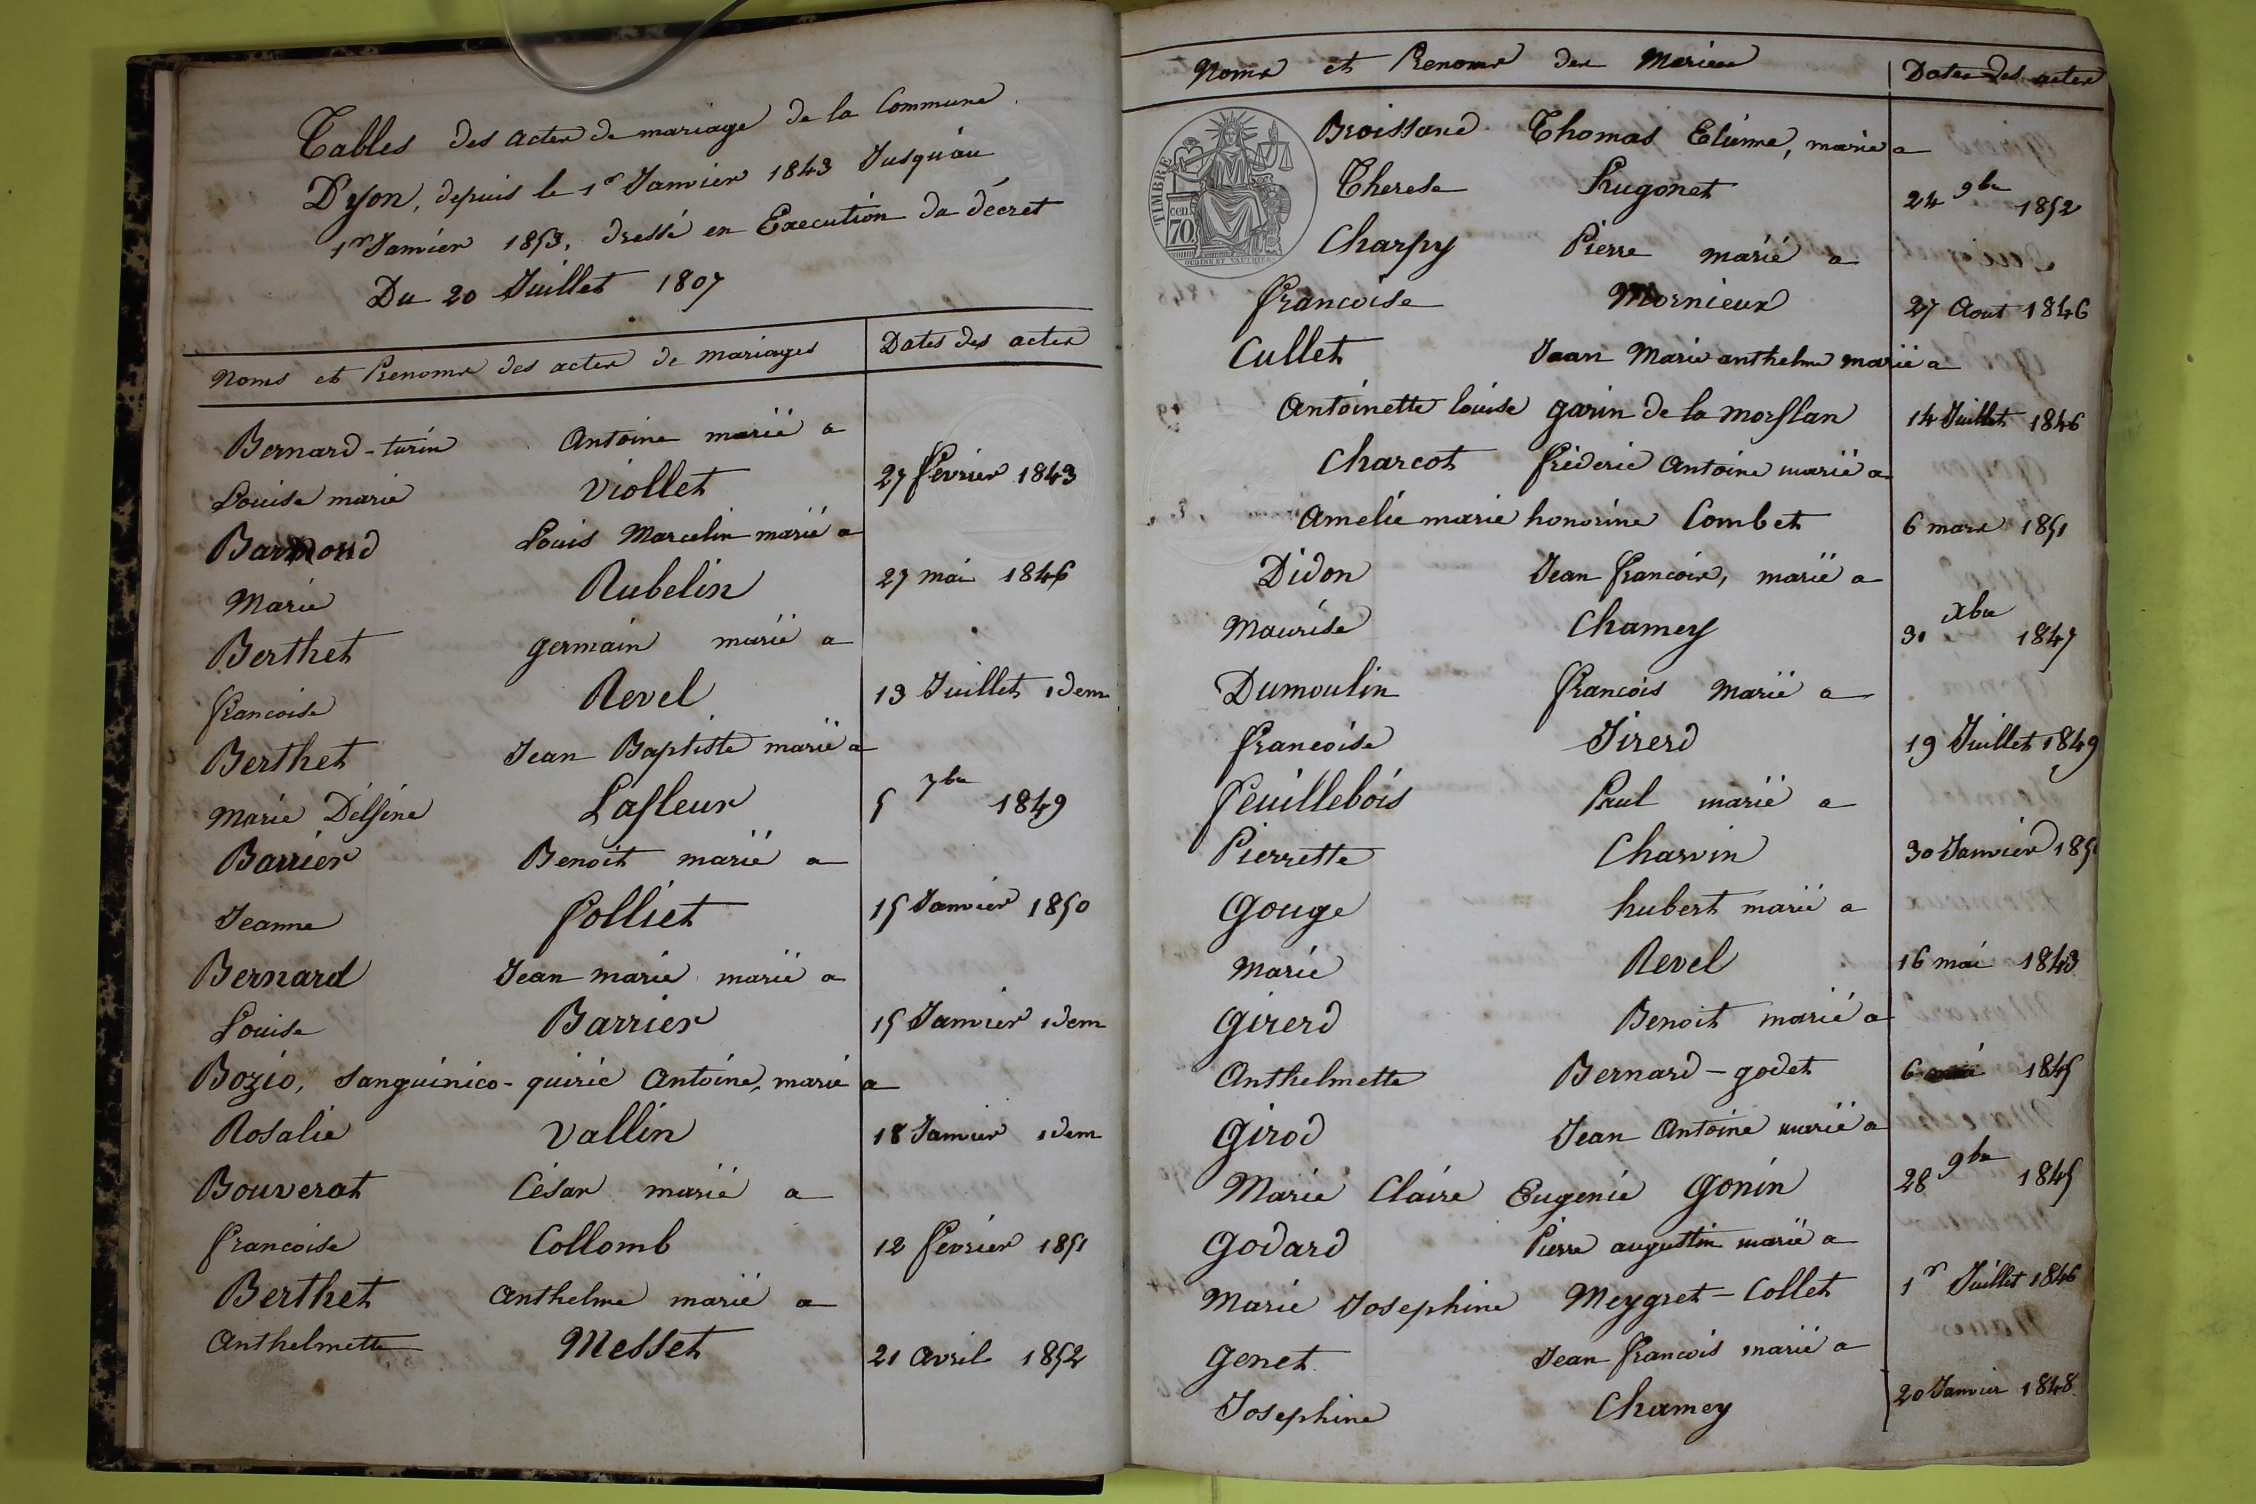 Tables des actes de mariage de la Commune
D'yon, depuis le 1er Janvier 1843 Jusqu'au
1er Janvier 1853, dressé en Execution du décret
Du 20 Juillet 1807
Noms et Prenoms des actes de mariages Dates des actes
Bernard-turin Antoine marié a
Louise marie Viollet 27 fevrier 1843
Barmond Louis Marcelin marié a
Marie Rubelin 27 mai 1846
Berthet germain marié a
francoise Revel 13 Juillet idem
Berthet Jean Baptiste marié a
Marie Delfine Lafleur 5 7bre 1849
Barrier Benoit marié a
Jeanne folliet 15 Janvier 1850
Bernard Jean marie marié a
Louise Barrier 15 Janvier idem
Bozio, sanguinico-quirie Antoine, marié a
Rosalie Vallin 18 Janvier idem
Bouverat César marié a
francoise Collomb 12 fevrier 1851
Berthet Anthelme marié a
Anthelmette Messet 21 Avril 1852
Noms et Prenoms des Mariés Dates des actes
TIMBRE
cen.
70
Broissand Thomas Etienne, marié a
Therese Hugonet 24 9bre 1852
Charpy Pierre marié a
francoise Mornieux 27 Aout 1846
Cullet Jean Marie anthelme marié a
Antoinette louise garin de la 14 Juillet 1846
Charcot fréderic Antoine marié a
Amelie marie honorine Combet 6 mars 1851
Didon Jean francois, marié a
Maurise Chamey 30 xbre 1847
Dumoulin francois Marié a
francoise Girerd 19 Juillet 1849
feuillebois Paul marié a
Pierrette Charvin 30 Janvier
Gouge hubert marié a
Marie Revel 16 mai 1843
Girerd Benoit marié a
Anthelmette Bernard-godet 6 1845
Girod Jean Antoine marié a
Marie Claire Eugenie Gonin 28 9bre 1845
Godard Pierre augustin marié a
Marie Josephine Meygret-Collet 1er Juillet 1846
Genet Jean francois marié a
Josephine Chamey 20 Janvier 1848